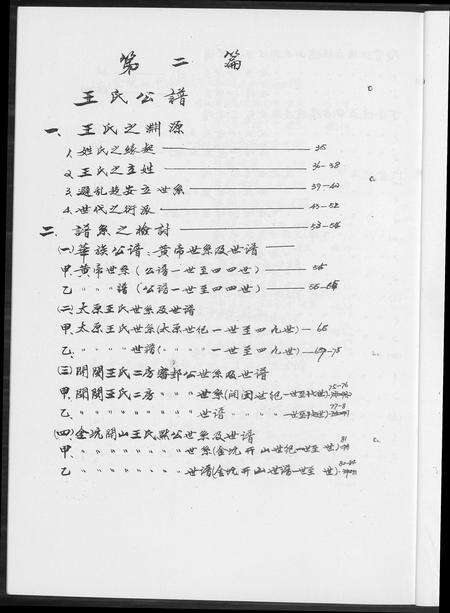 第二篇
王氏公譜
一、王氏之淵源
1. 姓氏之緣起 35
2. 王氏之立姓 36-38
3. 避亂莪安立世系 39-42
4. 世代之衍派 43-52
二、譜系之檢討 53-54
(一)華族公譜:黃帝世系及世譜
甲. 黃帝世系(公譜一世至四四世)
乙 〃 〃 譜(公譜一世至四四世)
(二)太原王氏世系及世譜
甲. 太原王氏世系(太原世紀一世至四九世) 65
乙. 〃 〃 世譜(〃 〃 〃 〃 一世至四九世)
(三)開閩王氏二房審邽公世系及世譜
甲. 開閩王氏二房 〃 〃 〃 世系(開閩世紀一世至 世) 75-76
乙. 〃 〃 〃 〃 〃 〃 〃 世譜 一世至 世) 77-8
(四)金坑開山王氏默公世系及世譜
甲. 〃 〃 〃 〃 〃 〃 〃 世系(金坑開山世紀一世至 世) 81
乙 〃 〃 〃 〃 〃 〃 〃 世譜(金坑開山世譜一世至 世)